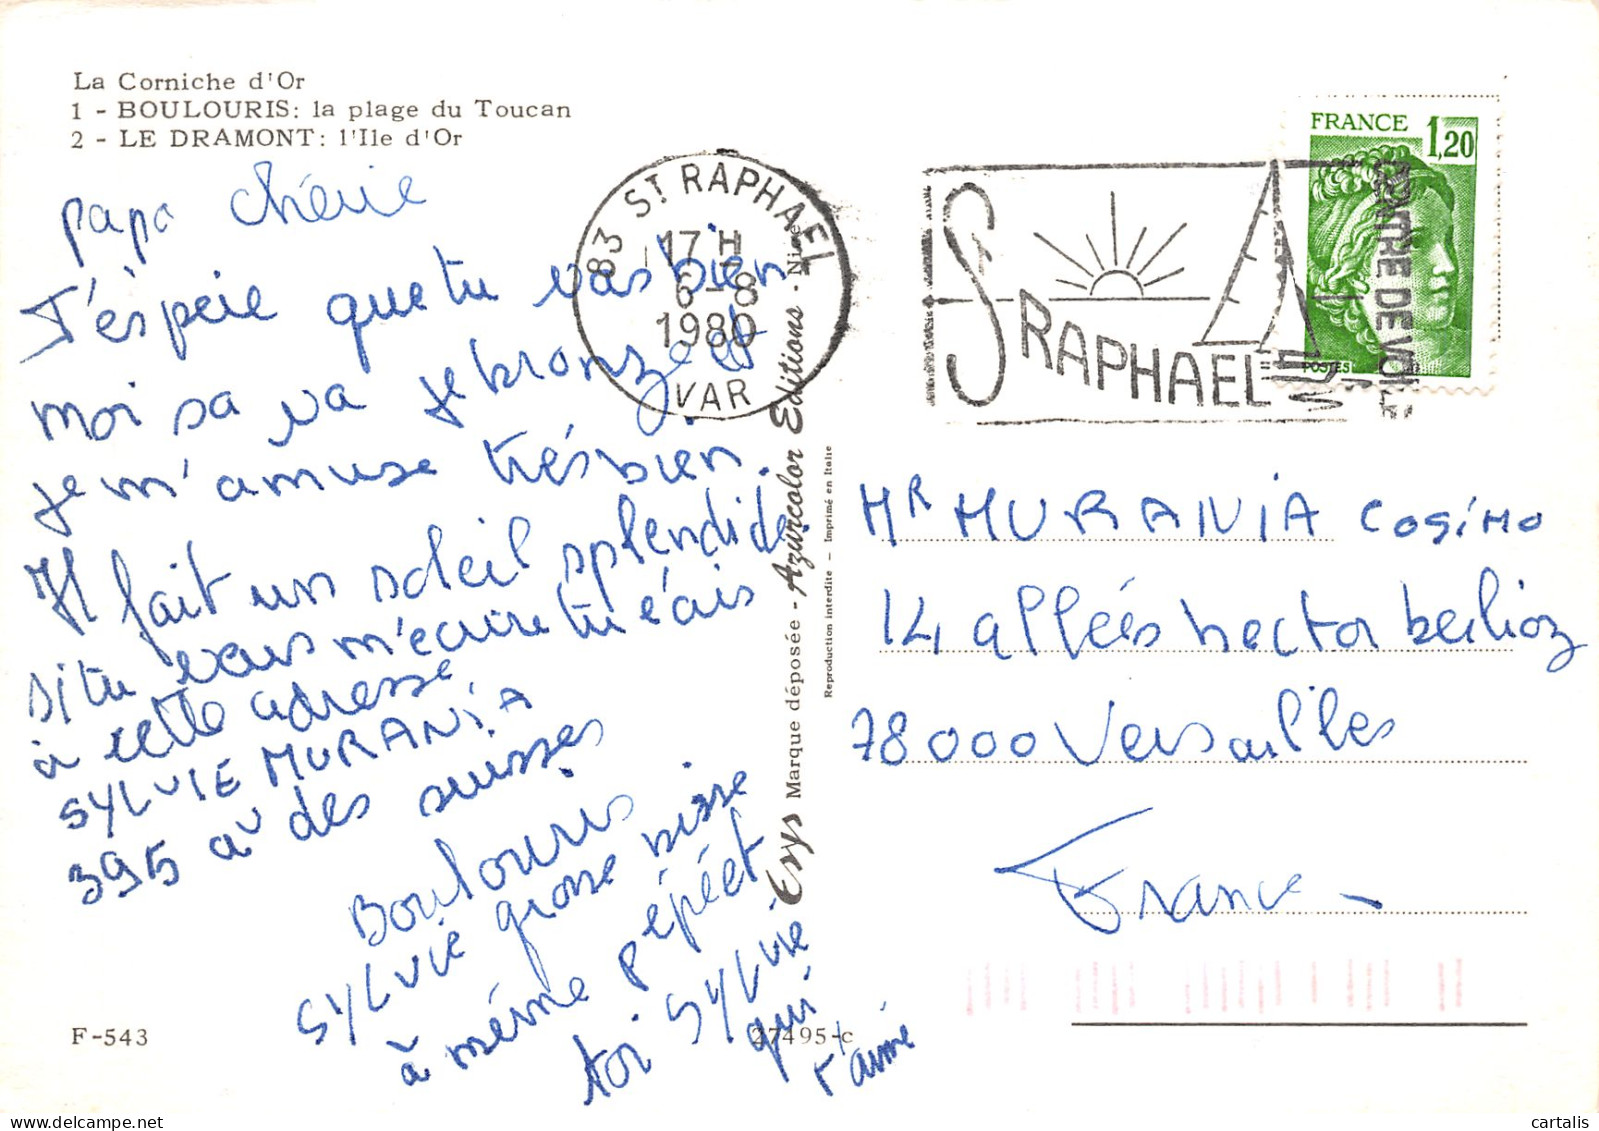 La Corniche d'Or
1 - BOULOURIS: la plage du Toucan
2 - LE DRAMONT: l'Ile d'Or
papa chérie
J'éspére que tu vas bien
moi sa va je bronze et
je m'amuse trés bien.
Il fait un soleil splendide.
si tu m'écrire tu écris
à cette adresse
SYLVIE MURANiA
395 av des suisses
Boulouris
SYLVIE grosse bisse
à méme pépé et
toi SYLVIE
qui
t'aime
F-543
27495-c
Esys Marque déposée - Azurcolor Editions - Nice
Reproduction interdite - Imprimé en Italie
83 ST RAPHAEL
17 H
6-8
1980
VAR
ST RAPHAEL
CENTRE DE VOILE
FRANCE 1,20
POSTES
MR MURANiA COSiMO
14 allées hector berlioz
78000 Versailles
France -
cartalis
cartalis.com